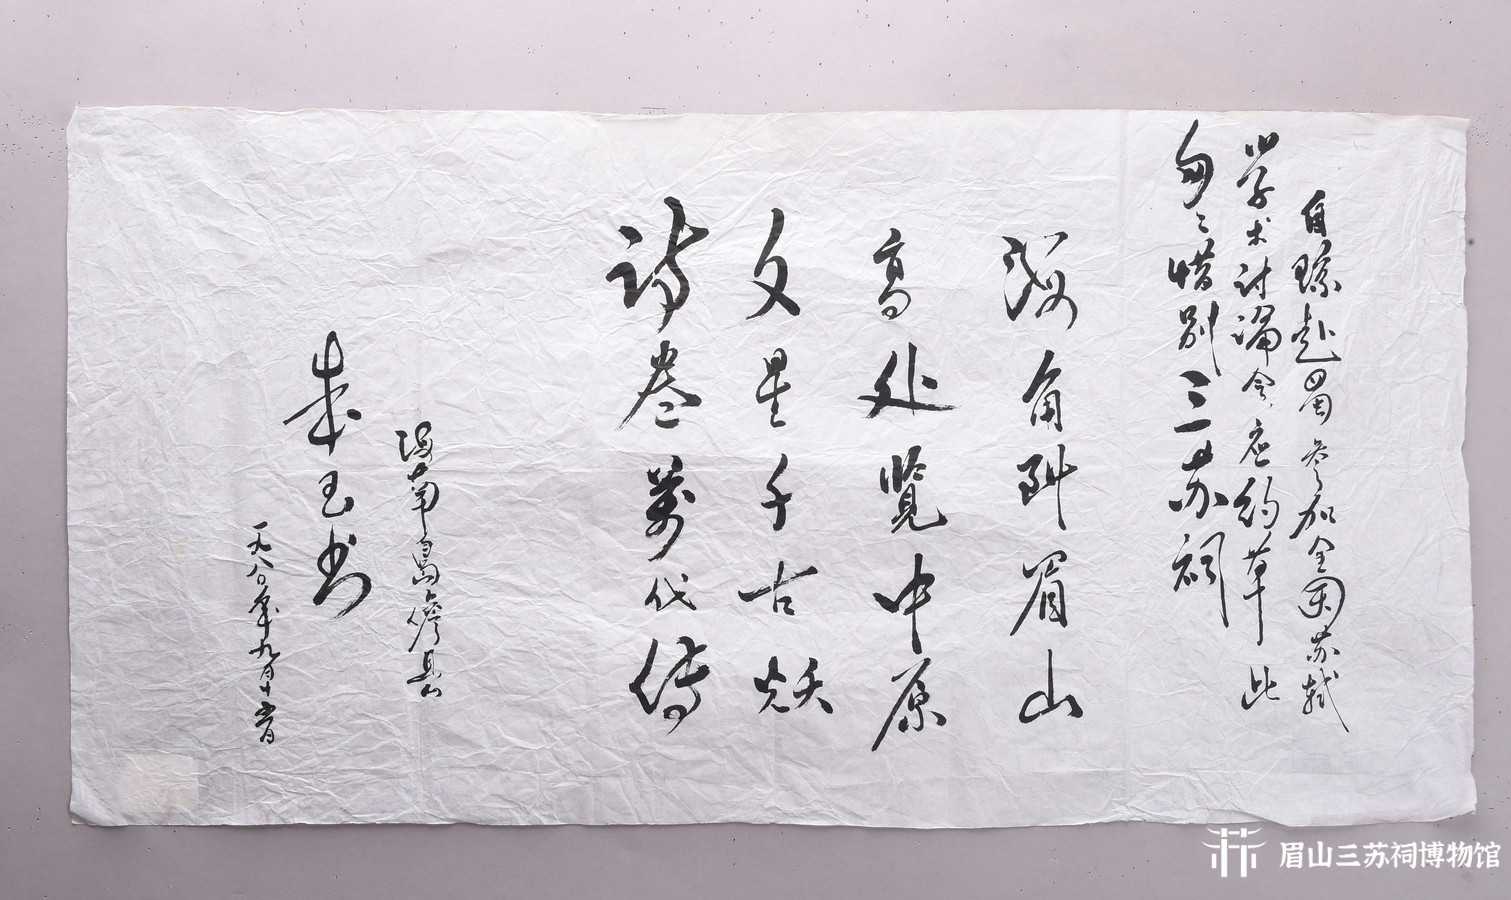 自琼赴蜀参加全国苏轼
学术讨论会应约草此
匆匆惜别三苏祠
海角眉山
高处览中原
文星千古
诗卷萬代传
海南岛儋县
朱玉书
一九八〇年九月十日
眉山三苏祠博物馆